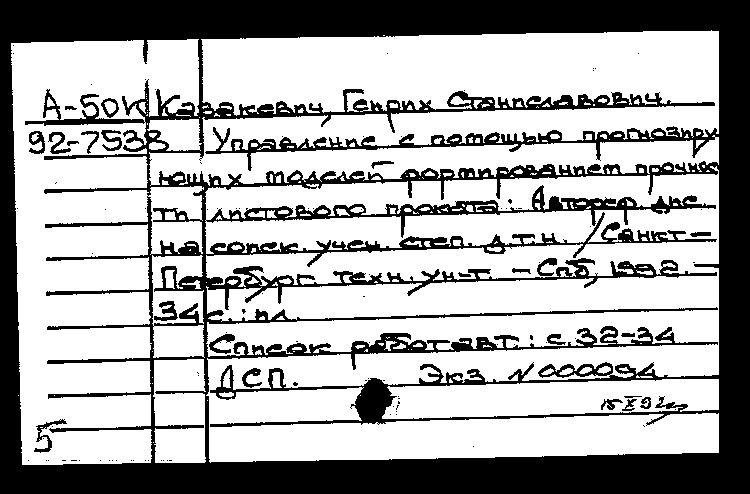 А-50К Казакевич, Генрих Станиславович.
92-7538 Управление с помощью прогнозиру
ющих моделей формированием прочнос
ти листового проката: Автореф. дис.
на соиск. учен. степ. д.т.н. / Санкт-
Петербург. техн. ун-т. - Спб, 1992. -
34 с. : ил.
Список работ авт.: с. 32-34
ДСП. Экз. N 000094.
15 X 92
5